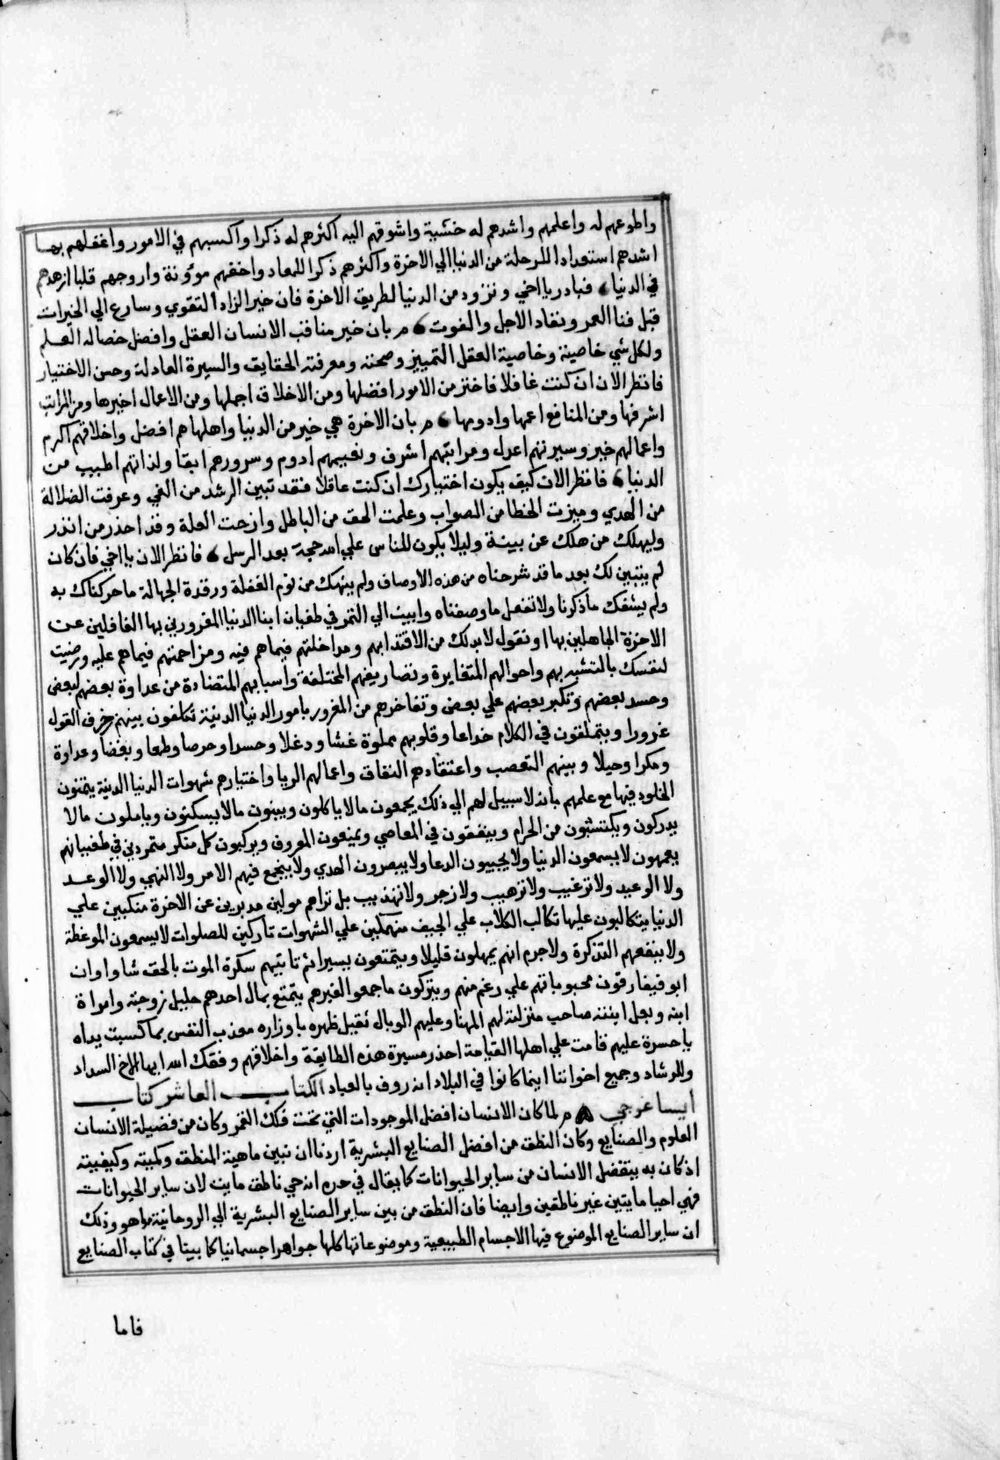 واطوعهم له واعلمهم واشدهم له خشية واشوقهم اليه اكثرهم له ذكرا واكسبهم في الامور واعقلهم بها
اشدهم استعدادا للرحلة من الدنيا الي الاخرة واكثرهم ذكرا للمعاد واخفهم موؤنة واروحهم قلبا ازهدهم
في الدنيا فبادر يا اخي وتزود من الدنيا لطريق الاخرة فان خير الزاد التقوي وسارع الي الخيرات
قبل فنا العمر ونفاد الاجل والفوت م بان خير مناقب الانسان العقل وافضل خصاله العلم
ولكل شي خاصية وخاصية العقل التمييز وصحته ومعرفته الحقايق والسيرة العادلة وحسن الاختيار
فانظر الان ان كنت غافلا فاختر من الامور افضلها ومن الاخلاق اجملها ومن الاعمال اخيرها ومن المراتب
اشرفها ومن المنافع اعمها وادومها م بان الاخرة هي خير من الدنيا واهلها هم افضل واخلاقهم اكرم
واعمالهم خير وسيرتهم اعدل ومراتبهم اشرف ونعيمهم ادوم وسرورهم ابقا ولذاتهم اطيب من
الدنيا فانظر الان كيف يكون اختيارك ان كنت عاقلا فقد تبين الرشد من الغي وعرفت الضلالة
من الهدي وميزت الخطا من الصواب وعلمت الحق من الباطل وازحت العلة وقد احذر من انذر
وليهلك من هلك عن بينة وليلا يكون للناس علي الله حجة بعد الرسل فانظر الان يا اخي فان كان
لم يتبين لك بعد ما قد شرحناه من هذه الاوصاف ولم ينبهك من نوم الغفلة ورقدة الجهالة ما حركناك به
ولم يشفك ماذكرنا ولا تفعل ما وصفناه وابيت الي التمر في طغيان ابنا الدنيا المغرورين بها الغافلين عن
الاخرة الجاهلين بها او تقول لا بد لك من الاقتدا بهم ومداخلتهم فيماهم فيه ومزاحمتهم فيماهم عليه ورضيت
لنفسك بالتشبه بهم واحوالهم المتغايرة وتصاريفهم المختلفة واسبابهم المتضادة من عداوة بعضهم لبعض
وحسد بعضهم وتكبر بعضهم علي بعض وتفاخرهم من المغرور بامور الدنيا الدنية تكلفون بينهم زخرف القول
غرورا ويتملقون في الكلام خداعا وقلوبهم مملوة غشا ودغلا وحسدا وحرصا وطمعا وبغضا وعداوة
ومكرا وحيلا وبينهم التعصب واعتقادهم النفاق واعمالهم الريا واختيارهم شهوات الدنيا الدنية يتمنون
الخلود فيها مع علمهم بانه لا سبيل لهم الي ذلك يجمعون مالا ياكلون ويبنون مالا يسكنون وياملون مالا
يدركون ويكتسبون من الحرام وينفقون في المعاصي ويمنعون المعروف ويركبون كل منكر متمردين في طغيانهم
يعمهون لا يسمعون الدنيا ولا يجيبون الدعا ولا يبصرون الهدي ولا ينجع فيهم الامر ولا النهي ولا الوعد
ولا الوعيد ولا ترغيب ولا ترهيب ولا زجر ولا تهذيب بل تراهم مولين مدبرين عن الاخرة منكبين علي
الدنيا يتكالبون عليها تكالب الكلاب علي الجيف منهمكين علي الشهوات تاركين للصلوات لا يسمعون الموعظة
ولا ينفعهم التذكرة ولا جرم انهم يمهلون قليلا ويتمتعون يسيرا ثم تاتيهم سكرة الموت بالحق شاوا وان
ابو فيفارقون محبوباتهم علي رغم منهم ويتركون ماجمعوا لغيرهم يتمتع بمال احدهم حليل زوجته وامراة
ابنه وبعل ابنته صاحب منزلته لهم المهنا وعليهم الوبال ثقيل ظهره باوزاره معذب النفس بماكسبت يداه
يا حسرة عليهم قامت علي اهلها القيامة احذر مسيرة هذه الطايفة واخلاقهم وفقك الله ايها الاخ السداد
وللرشاد وجميع اخواننا اينما كانوا في البلاد انه روف بالعباد الكتاب العاشر كتاب
ايساغوجي م لما كان الانسان افضل الموجودات التي تحت فلك القمر وكان من فضيلة الانسان
العلوم والصنايع وكان النطق من افضل الصنايع البشرية اردنا ان نبين ماهية المنطق وكميته وكيفيته
اذ كان به يتفضل الانسان من ساير الحيوانات كما يقال في حده انه حي ناطق مايت لان ساير الحيوانات
فهي احيا مايتين غير ناطقين وايضا فان النطق من بين ساير الصنايع البشرية الي الروحانية ماهو وذلك
ان ساير الصنايع الموضوع فيها الاجسام الطبيعية وموضوعاتها كلها جواهر جسمانيا كما بينا في كتاب الصنايع
فاما